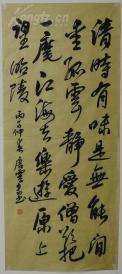 清時有味是無能閒
愛孤雲靜愛僧欲把
一麾江海去樂遊原上
望昭陵